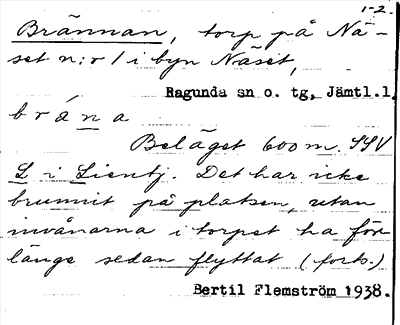 1-2.
Brännan, torp på Nä-
set n:r 1 i byn Näset,
Ragunda sn o. tg, Jämtl.l.
brána
Beläget 600 m. SSV
L i Lientj. Det har icke
brunnit på platsen, utan
invånarna i torpet ha för
länge sedan flyttat (forts.)
Bertil Flemström 1938.